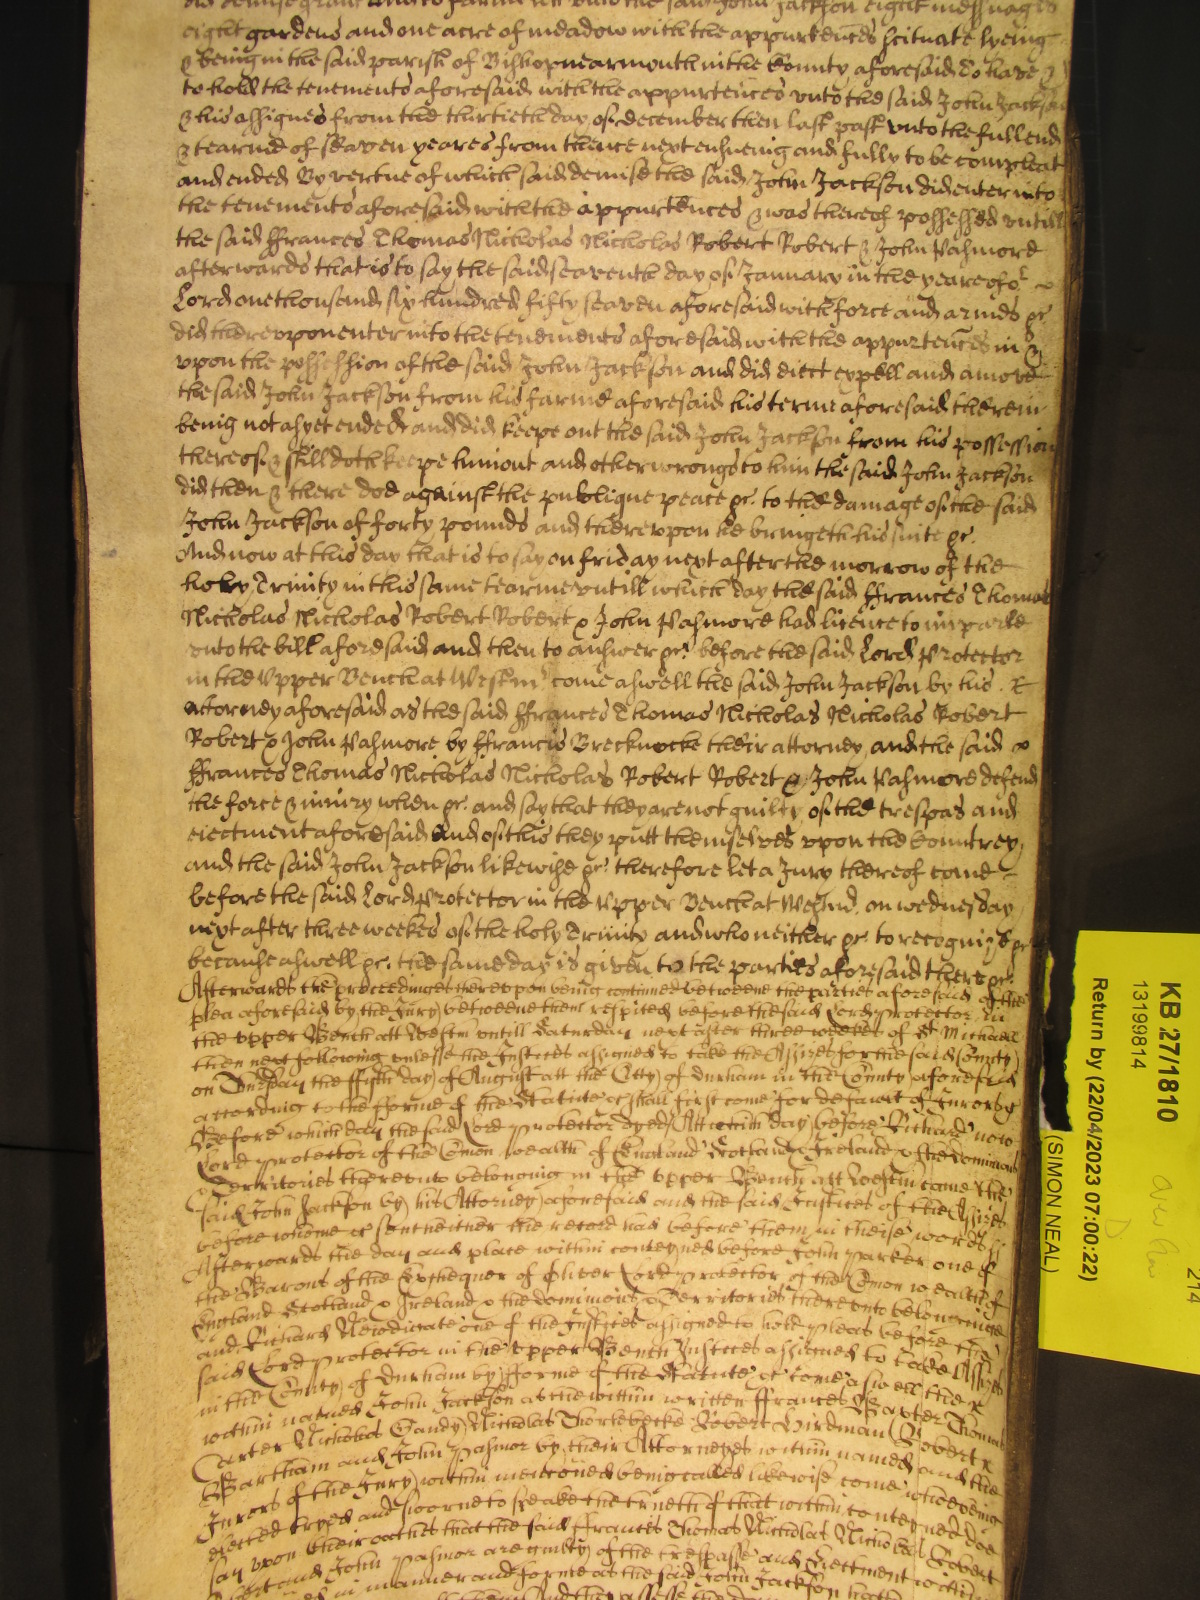 did demise grant and to farme lett unto the said John Jackson eight messuages
eight gardens and one acre of meadow with the appurtences scituate lyeing
& being in the said parish of Bishopnearmouth in the County aforesaid To have &
to hold the tenements aforesaid with the appurtences unto the said John Jackson
& his assignes from the thirtieth day of december then last past unto the full end
& tearme of seaven yeares from thence next ensueing and fully to be compleat
and ended By vertue of which said demise the said John Jackson did enter into
the tenements aforesaid with the appurtences & was thereof possessed untill
the said ffrances Thomas Nicholas Nicholas Robert Robert & John Pasmore
afterwards that is to say the said seaventh day of January in the yeare of or
Lord one thousand six hundred fifty seaven aforesaid with force and armes &c
did thereupon enter into the tenements aforesaid with the appurtences in &
upon the possession of the said John Jackson and did eiect expell and amove
the said John Jackson from his farme aforesaid his terme aforesaid therein
being not as yet ended and did keepe out the said John Jackson from his possession
thereof & still doth keepe him out and other wrongs to him the said John Jackson
did then & there doe against the publique peace &c. to the damage of the said
John Jackson of forty pounds and thereupon he bringeth his suite &c.
And now at this day that is to say on friday next after the morrow of the
holy Trinity in this same tearme untill which day the said ffrances Thomas
Nicholas Nicholas Robert Robert & John Pasmore had licence to imparle
unto the bill aforesaid and then to answer &c. before the said Lord Protector
in the Upper Bench at Westm come aswell the said John Jackson by his
attorney aforesaid as the said ffrances Thomas Nicholas Nicholas Robert
Robert & John Pasmore by ffrancis Brecknocke their attorney and the said
ffrances Thomas Nicholas Nicholas Robert Robert & John Pasmore defend
the force & iniury when &c. and say that they are not guilty of the trespas and
eiectment aforesaid And of this they putt themselves upon the Countrey
and the said John Jackson likewise &c. therefore let a Jury thereof come
before the said Lord Protector in the Upper Bench at Westmr. on wednesday
next after three weekes of the holy Trinity and who neither &c. to recognize &c
because aswell &c. the same day is given to the parties aforesaid there &c.
Afterwards the proceedinges thereupon being continued betweene the parties aforesaid of the
plea aforesaid by the Jury betweene them respited before the said Lord Protector in
the upper Bench att Westm untill Saturday next after three weekes of St Michaell
then next following unlesse the Justices assigned to take the Assizes for the said County
on Thursday the fifth day of August att the Citty of Durham in the County aforesaid
according to the fforme of the Statute &c shall first come for default of Jurors &c
Before which day the said Lord Protector dyed Att which day before Richard now
Lord protector of the Comon wealth of England Scotland & Ireland & the Dominions
Territories thereunto belonging in the upper Bench att Westm came the
said John Jackson by his Attorney aforesaid and the said Justices of the Assizes
before whome &c sent hither the record had before them in theise words ss
Afterwards the day and place within conteyned before John Parker one of
the Barons of the Exchequer of Oliver Lord Protector of the Comon wealth of
England Scotland & Ireland & the dominions & Territories thereunto belonginge
and Richard Newdigate one of the Justices assigned to hold Pleas before the
said Lord protector in the upper Bench Justices assigned to take Assizes
in the County of Durham by fforme of the Statute &c come aswell the
within named John Jackson as the within written ffrances Baxter Thomas
Carter Nicholas Gandy Nicholas Thorlebecke Robert Birdman Robert
Bartham and John Pasmor by their Attorneyes within named and the
Jurors of the Jury within mencioned being called likewise come who being
elected tryed and sworne to speake the trueth of that within conteyned doe
say upon their oathes that the said ffrances Thomas Nicholas Nicholas Robert
Robert and John Pasmor are guilty of the trespasse and Eiectment within
in manner and forme as the said John Jackson hath
And they assesse the
KB 27/1810
13199814
Return by (22/04/2023 07:00:22)
(SIMON NEAL)
214